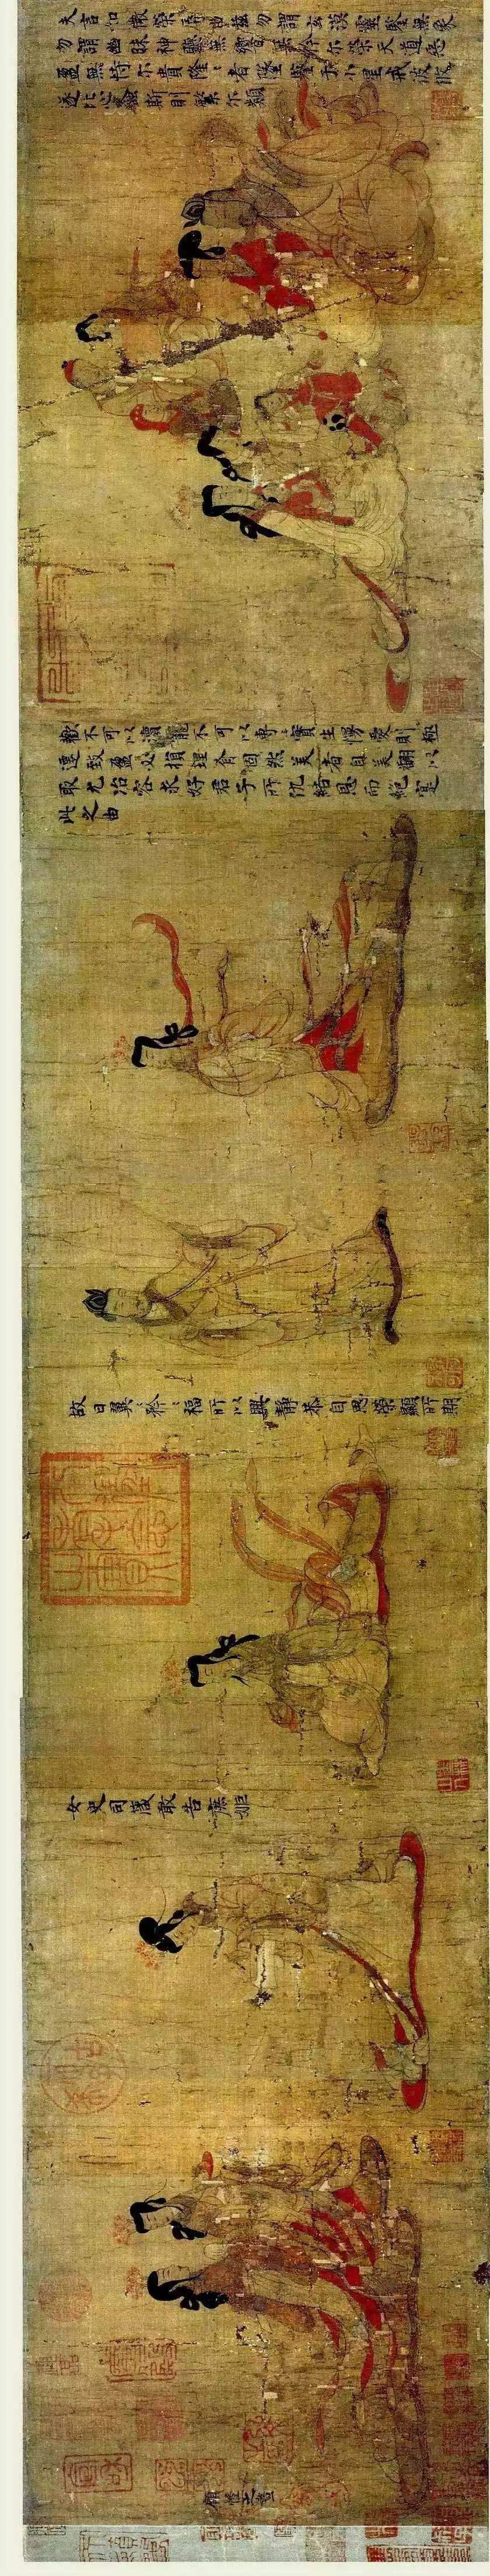 夫言如微榮辱由茲勿謂玄漠靈鑒無象
勿謂幽昧神聽無響無矜尔榮天道惡
盈無恃尔貴隆〻者墜鑒于小星戒彼攸
遂比心螽斯則繁尔類
歡不可以瀆寵不可以專〻實生慢愛則極
遷致盈必損理有固然美者自美翩以
取尤冶容求好君子所仇結恩而絕寔
此之由
故曰翼〻矜〻福所以興靜恭自思榮顯所期
女史司箴敢告庶姬
顧愷之畫